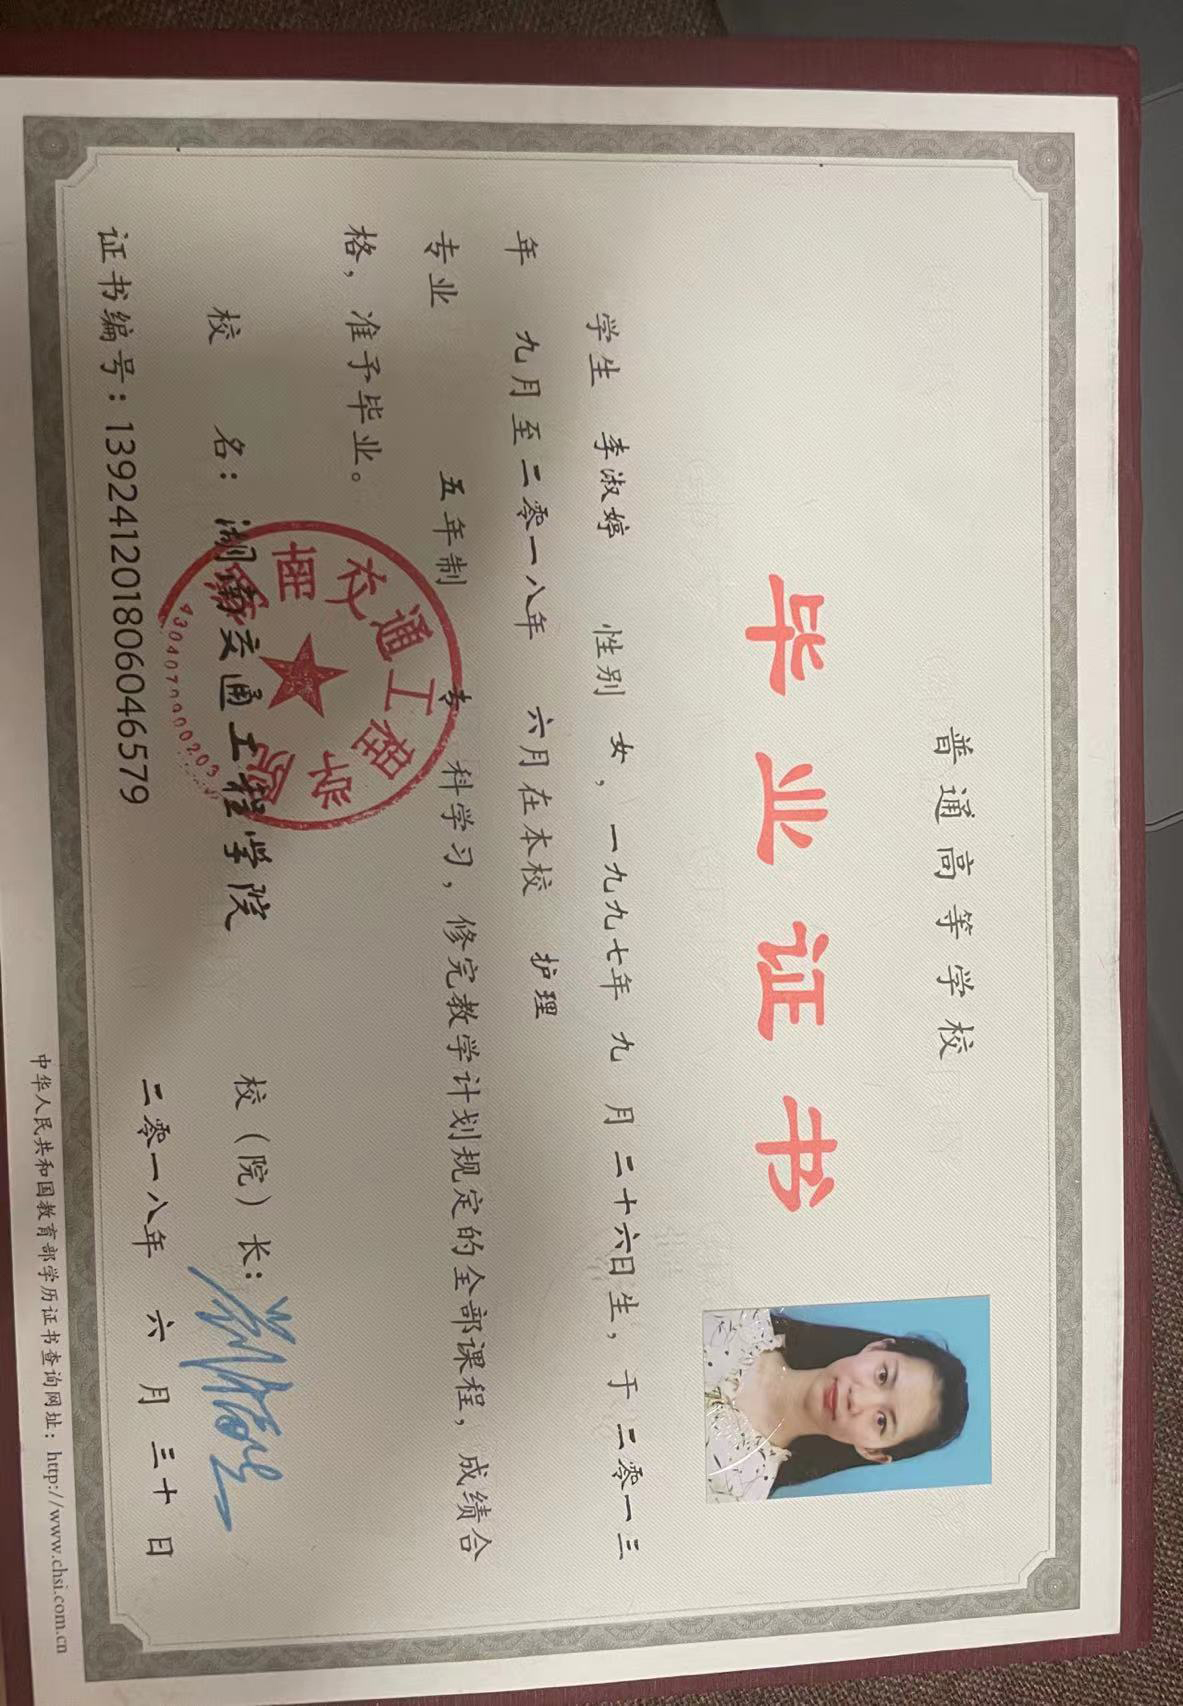 普通高等学校
毕业证书
学生 李淑婷 性别 女，一九九七年 九 月 二十六日生，于 二零一三
年 九月至二零一八年 六月在本校 护理
专业 五年制 专 科学习，修完教学计划规定的全部课程，成绩合
格，准予毕业。
校 名：湖南交通工程学院
校（院）长：
证书编号：139241201806046579
二零一八年 六 月 三十 日
中华人民共和国教育部学历证书查询网址：http://www.chsi.com.cn